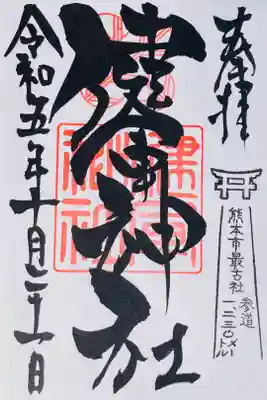 奉拝
熊本市最古社
参道
一、二三〇メートル
健軍神社
令和五年十月二十一日